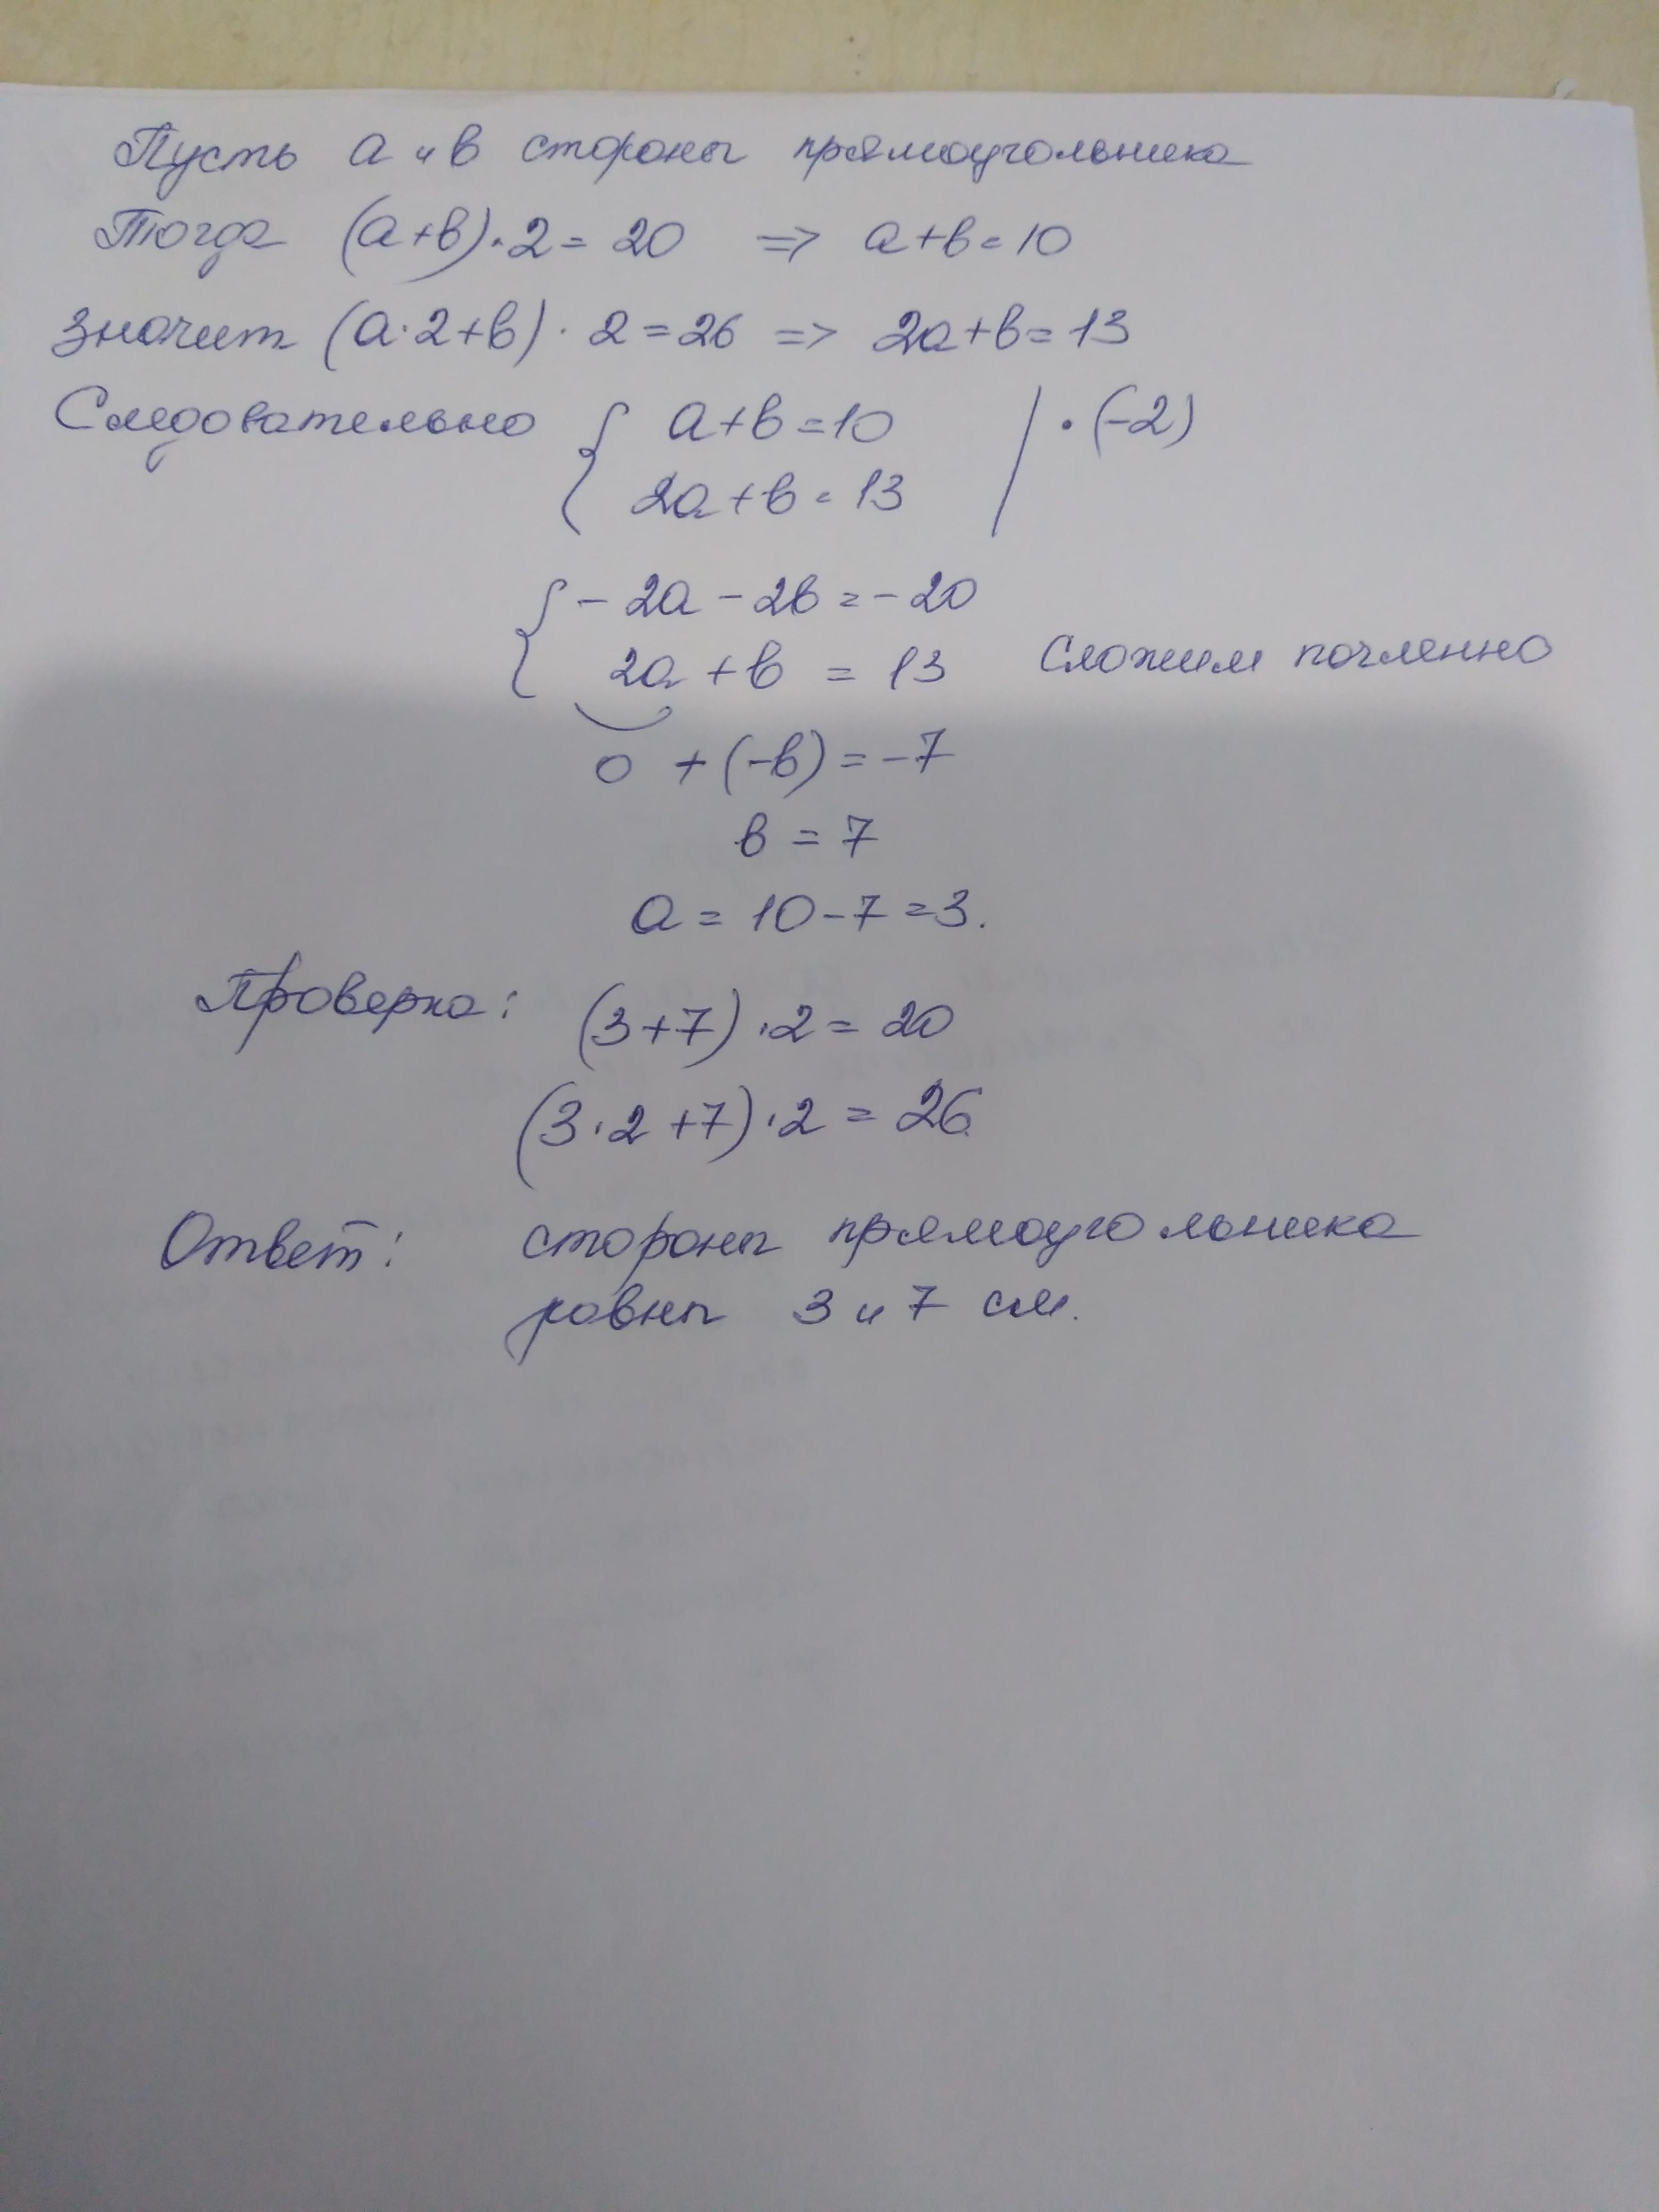 Пусть а и в стороны прямоугольника
Тогда (а+в)·2= 20 => а+в=10
значит (а·2+в)·2=26 => 2а+в=13
Следовательно { а+в=10 | ·(-2)
2а+в=13
{ -2а-2в=-20
2а+в = 13 Сложим почленно
0 +(-в)=-7
в = 7
а = 10-7=3.
Проверка: (3+7)·2= 20
(3·2+7)·2 = 26
Ответ: стороны прямоугольника
равны 3 и 7 см.